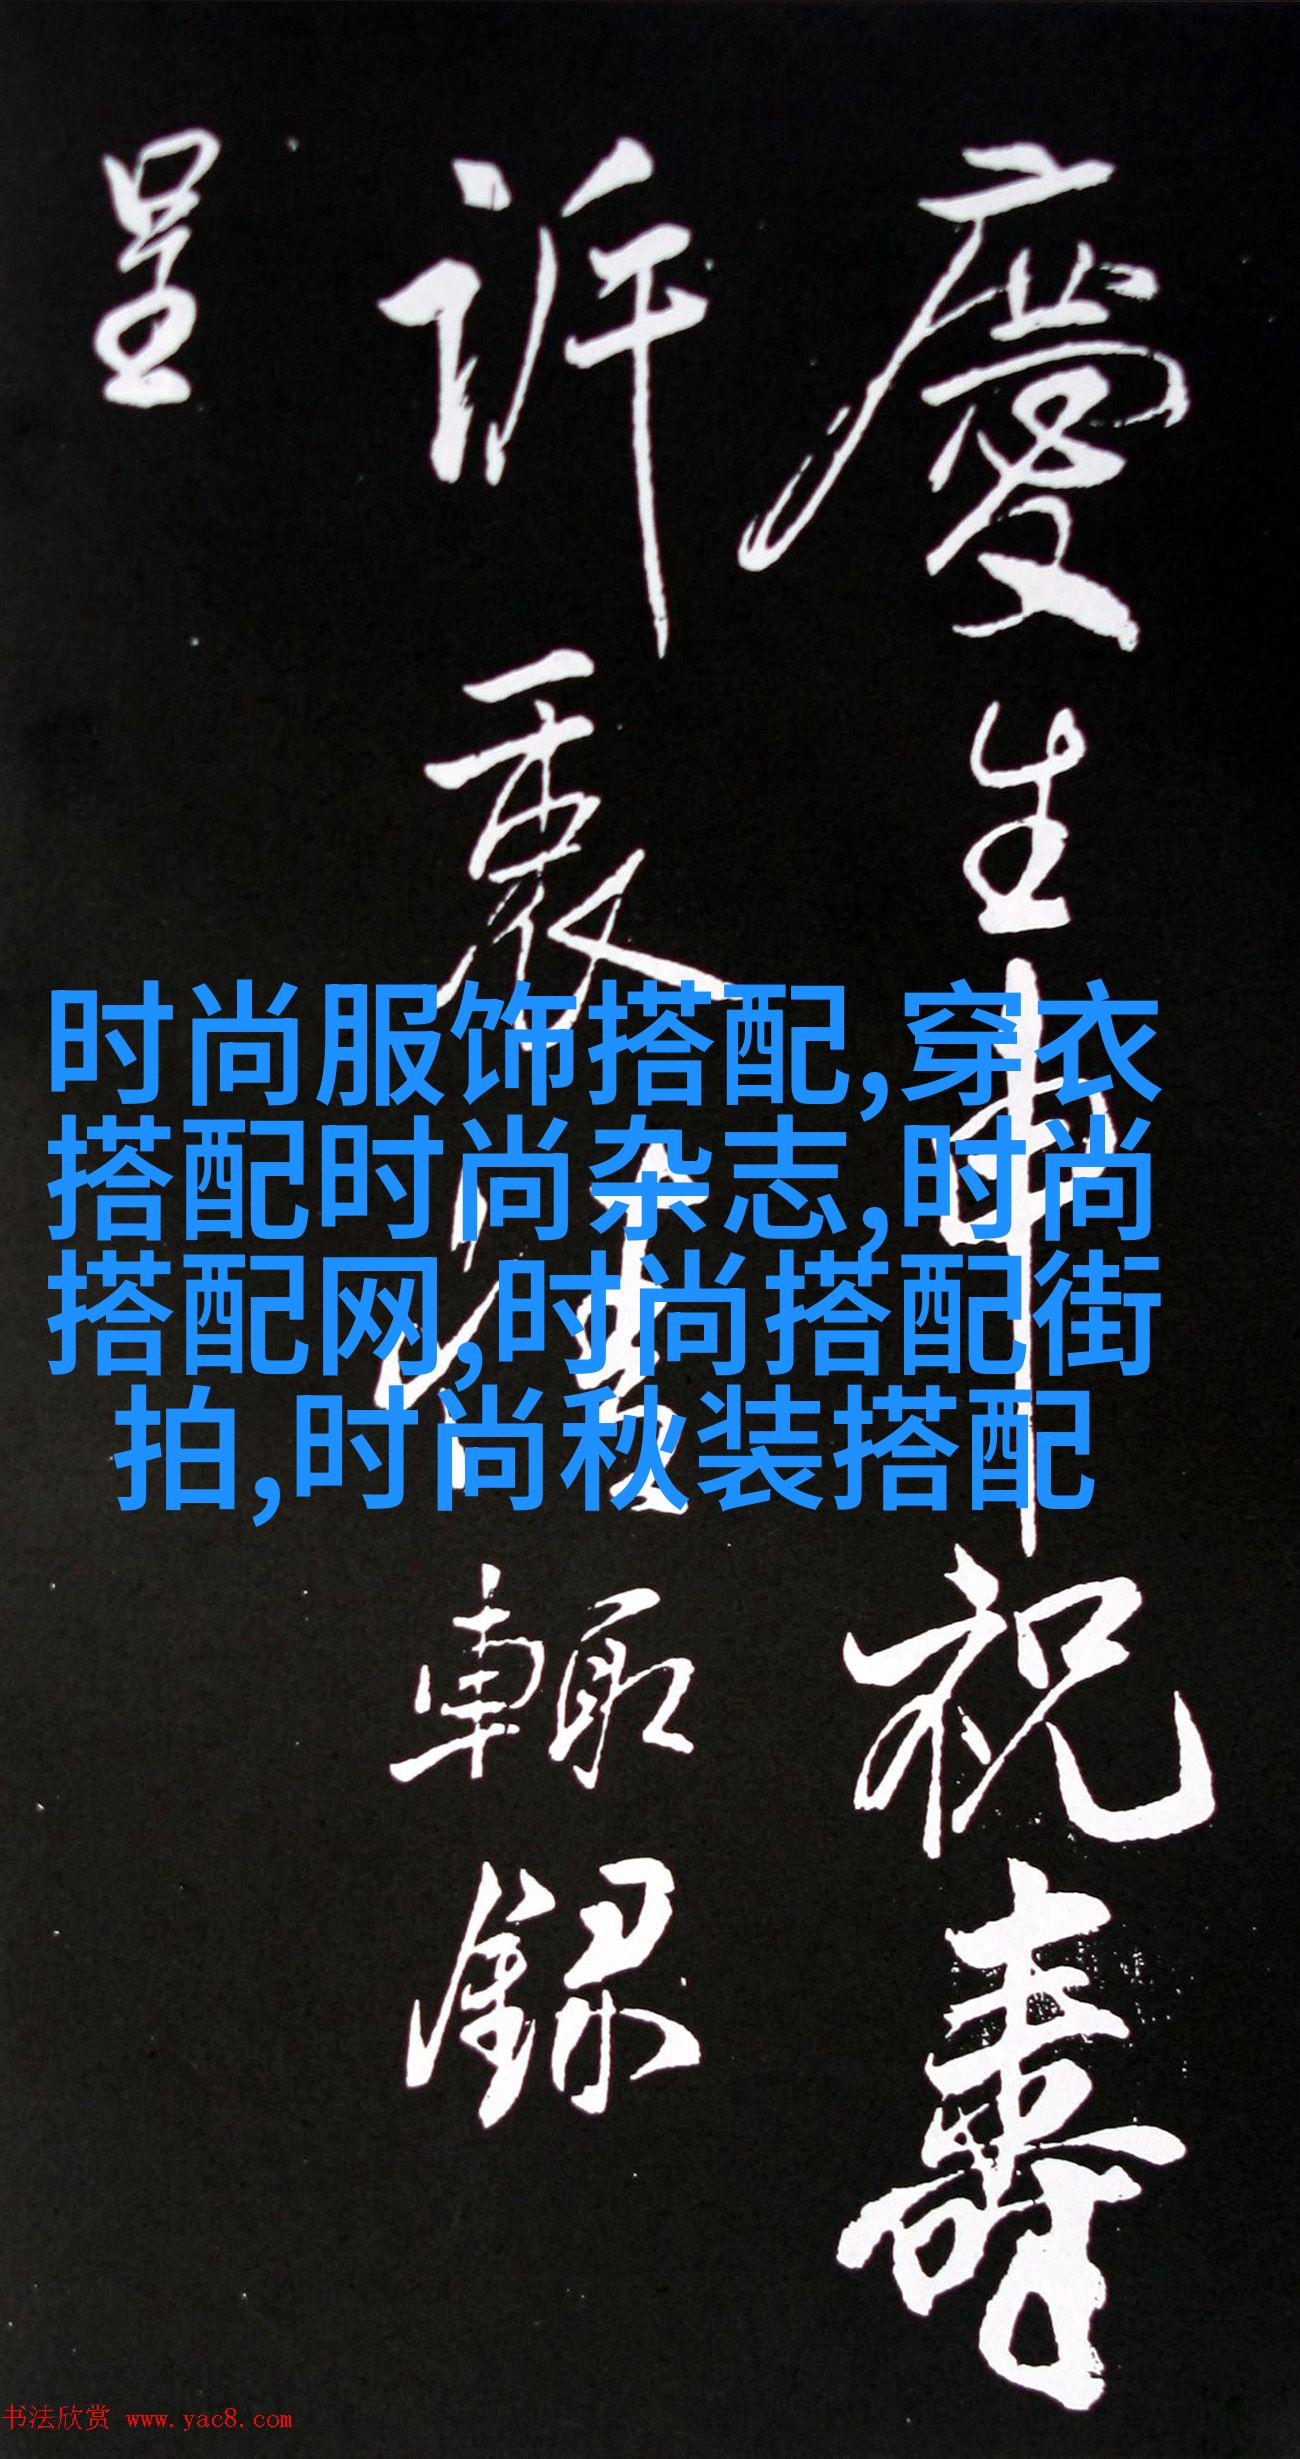 慶生申祝壽
訴衷情輒錄
呈
时尚服饰搭配,穿衣
搭配时尚杂志,时尚
搭配网,时尚搭配街
拍,时尚秋装搭配
书法欣赏 www.yac8.com